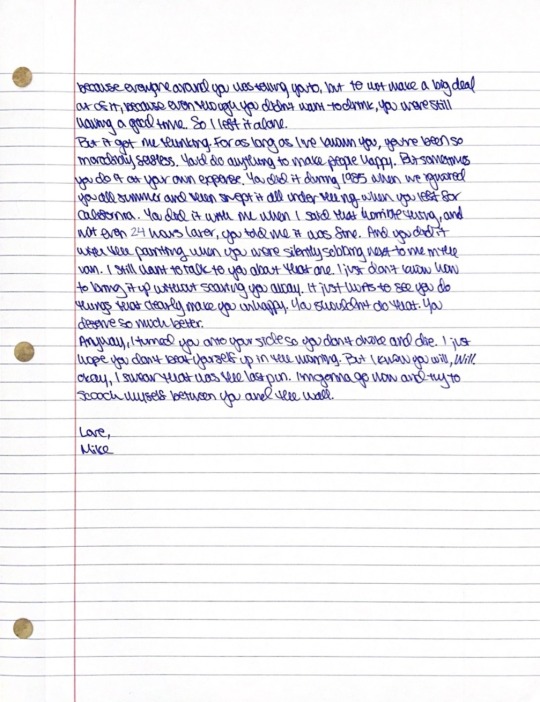 because everyone around you was telling you to, but to not make a big deal
out of it, because even though you didn't want to drink, you were still
having a good time. So I left it alone.
But it got me thinking. For as long as I've known you, you've been so
selfless. You'd do anything to make people happy. But sometimes
you do it at your own expense. You did it during 1985 when we ignored
you all summer and then swept it all under the rug when you left for
California. You did it with me when I said that horrible thing, and
not even 24 hours later, you told me it was fine. And you did it
with the painting when you were silently sobbing next to me in the
van. I still want to talk to you about that one. I just don't know how
to bring it up without scaring you away. It just hurts to see you do
things that clearly make you unhappy. You shouldn't do that. You
deserve so much better.
Anyway, I turned you onto your side so you don't choke and die. I just
hope you don't beat yourself up in the morning. But I know you will, Will.
Okay, I swear that was the last pun. I'm gonna go now and try to
scooch myself between you and the wall.
Love,
Mike